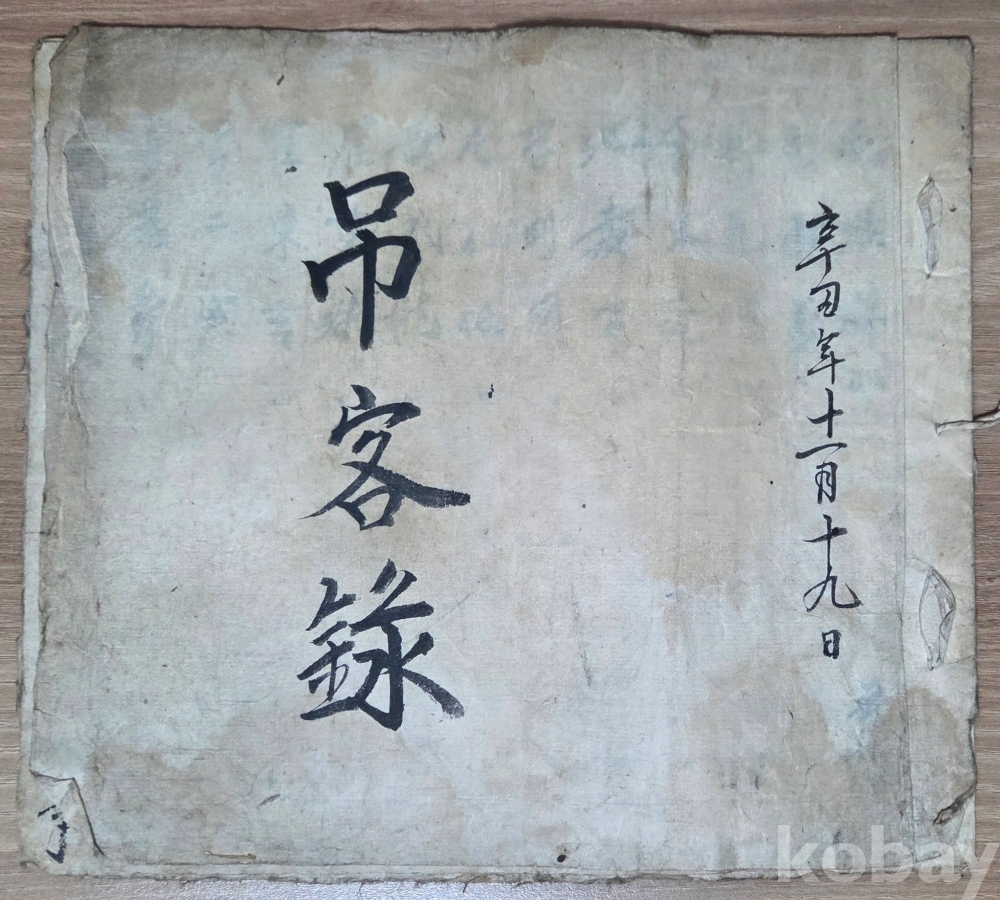 辛丑年十一月十九日
吊客錄
kobay